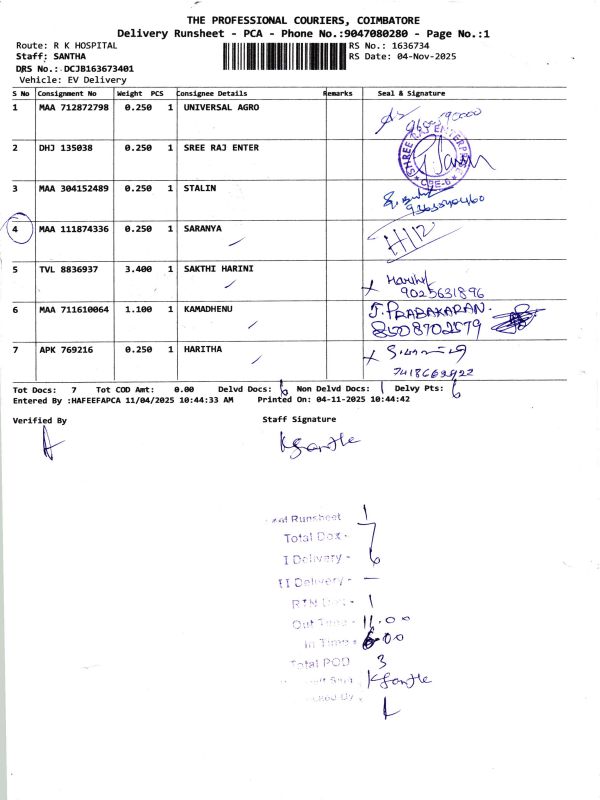 THE PROFESSIONAL COURIERS, COIMBATORE
Delivery Runsheet - PCA - Phone No.:9047080280 - Page No.:1
Route: R K HOSPITAL RS No.: 1636734
Staff: SANTHA RS Date: 04-Nov-2025
DRS No.: DCJB163673401
Vehicle: EV Delivery
S No Consignment No Weight PCS Consignee Details Remarks Seal & Signature
1 MAA 712872798 0.250 1 UNIVERSAL AGRO
2 DHJ 135038 0.250 1 SREE RAJ ENTER
SHREE RAJ ENTERPRISE
CBE-6
3 MAA 304152489 0.250 1 STALIN
4 MAA 111874336 0.250 1 SARANYA
H/12
5 TVL 8836937 3.400 1 SAKTHI HARINI
9025631896
6 MAA 711610064 1.100 1 KAMADHENU J. PRABAKARAN.
8608702579
7 APK 769216 0.250 1 HARITHA
Tot Docs: 7 Tot COD Amt: 0.00 Delvd Docs: 6 Non Delvd Docs: 1 Delvy Pts: 6
Entered By :HAFEEFAPCA 11/04/2025 10:44:33 AM Printed On: 04-11-2025 10:44:42
Verified By Staff Signature
Runsheet 1
Total Dox - 7
I Delivery - 6
II Delivery - —
RTN 1
Out Time - 11.00
In Time - 6.00
Total POD 3